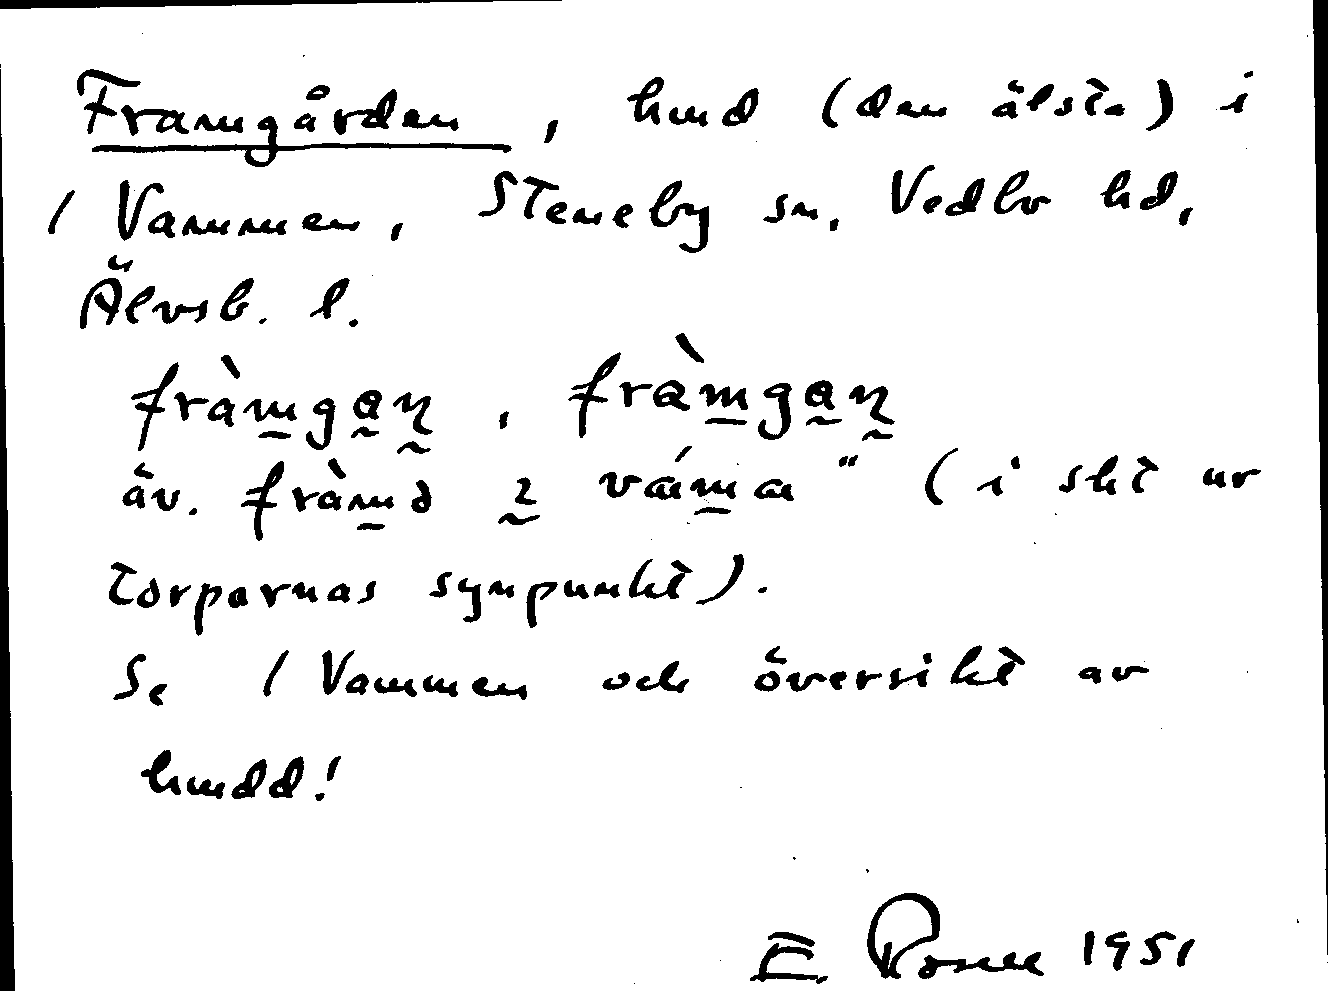 Framgården, hmd (den älsta) i
/ Vammen, Steneby sn, Vedbo hd,
Älvsb. l.
fràmgaɳ, fràmgaɳ
äv. fràmə 2 váma" (i skt ur
torparnas synpunkt).
Se / Vammen och översikt av
hmdd!
E. 1951